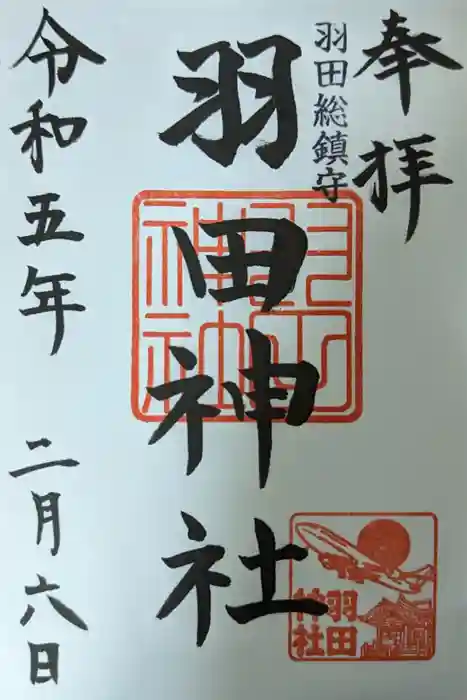 奉拝
羽田総鎮守
羽田神社
令和五年 二月六日
羽田神社
羽田神社